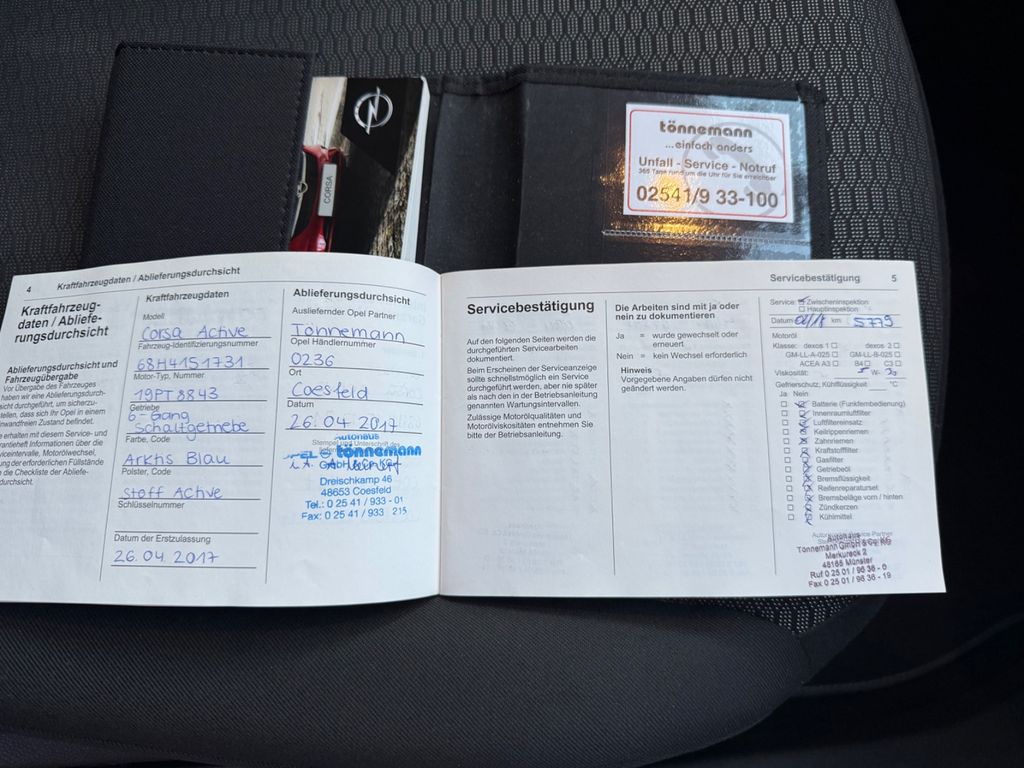 CORSA
tönnemann
...einfach anders
Unfall - Service - Notruf
365 Tage rund um die Uhr für Sie erreichbar
02541/9 33-100
4 Kraftfahrzeugdaten / Ablieferungsdurchsicht
Kraftfahrzeug-
daten / Abliefe-
rungsdurchsicht
Ablieferungsdurchsicht und
Fahrzeugübergabe
Vor Übergabe des Fahrzeuges
haben wir eine Ablieferungs-
sicht durchgeführt, um sicherzu-
stellen, dass sich Ihr Opel in einem
inwandfreien Zustand befindet.
erhalten mit diesem Service- und
arantieheft Informationen über die
viceintervalle, Motorölwechsel,
ung der erforderlichen Füllstände
die Checkliste der Abliefe-
durchsicht.
Kraftfahrzeugdaten
Modell
Corsa Active
Fahrzeug-Identifizierungsnummer
68H4151731
Motor-Typ, Nummer
19PT8843
Getriebe
6-Gang
Schaltgetriebe
Farbe, Code
Arktis Blau
Polster, Code
Stoff Active
Schlüsselnummer
Datum der Erstzulassung
26.04.2017
Ablieferungsdurchsicht
Ausliefernder Opel Partner
Tönnemann
Opel Händlernummer
0236
Ort
Coesfeld
Datum
26.04.2017
Stempel und Unterschrift des
Autohaus
tönnemann
i.A.
Dreischkamp 46
48653 Coesfeld
Tel.: 0 25 41 / 933 - 01
Fax: 0 25 41 / 933 215
Servicebestätigung 5
Servicebestätigung
Auf den folgenden Seiten werden die
durchgeführten Servicearbeiten
dokumentiert.
Beim Erscheinen der Serviceanzeige
sollte schnellstmöglich ein Service
durchgeführt werden, aber nie später
als nach den in der Betriebsanleitung
genannten Wartungsintervallen.
Zulässige Motorölqualitäten und
Motorölviskositäten entnehmen Sie
bitte der Betriebsanleitung.
Die Arbeiten sind mit ja oder
nein zu dokumentieren
Ja = wurde gewechselt oder
erneuert
Nein = kein Wechsel erforderlich
Hinweis
Vorgegebene Angaben dürfen nicht
geändert werden.
Service: Zwischeninspektion
Hauptinspektion
Datum km 5779
Motoröl
Klasse: dexos 1 dexos 2
GM-LL-A-025 GM-LL-B-025
ACEA A3 B4 C3
Viskosität: 5 W-
Gefrierschutz, Kühlflüssigkeit °C
Ja Nein
Batterie (Funkfernbedienung)
Innenraumluftfilter
Luftfiltereinsatz
Keilrippenriemen
Zahnriemen
Kraftstofffilter
Gasfilter
Getriebeöl
Bremsflüssigkeit
Reifenreparaturset
Bremsbeläge vorn / hinten
Zündkerzen
Kühlmittel
Autohaus
Tönnemann GmbH & Co. KG
Merkureck 2
48165 Münster
Ruf 0 25 01 / 96 36 - 0
Fax 0 25 01 / 96 36 - 19